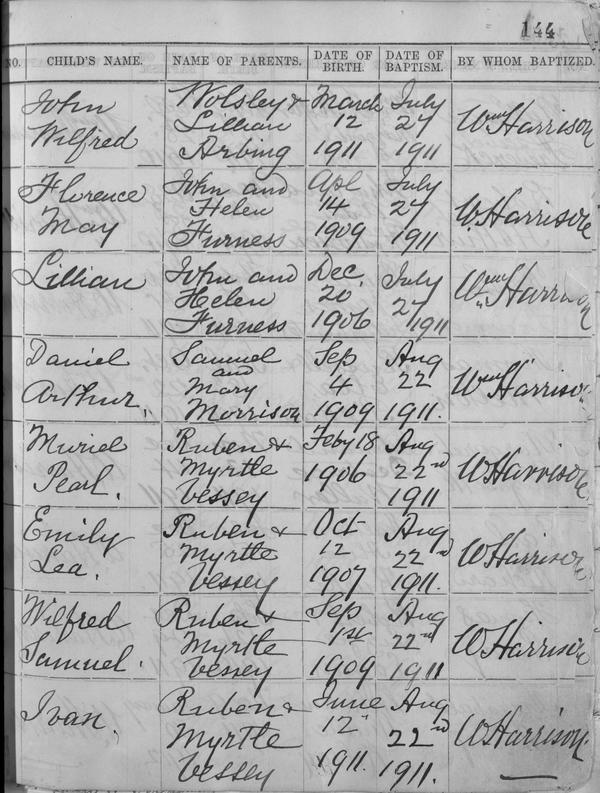 144
NO. CHILD'S NAME. NAME OF PARENTS. DATE OF BIRTH. DATE OF BAPTISM. BY WHOM BAPTIZED.
John Wolsley & March July
Wilfred Lillian 12 27 Wm Harrison
Arbing 1911 1911
Florence John and Apl July
May Helen 14 27 W. Harrison
Furness 1909 1911
Lillian John and Dec. July Wm Harrison
Helen 20 27 "
Furness 1906 1911
Daniel Samuel Sep Aug
Arthur. and 4 22 Wm Harrison
Mary
Morrison 1909 1911.
Muriel Ruben & Feby 18 Aug
Pearl. Myrtle 1906 22nd W Harrison
Vessey 1911
Emily Ruben & Oct Aug
Lea. Myrtle 12 22nd W Harrison
Vessey 1907 1911.
Wilfred Ruben & Sep Aug
Samuel. Myrtle 1st 22nd W Harrison
Vessey 1909 1911
Ivan. Ruben & June Aug
Myrtle 12 22nd W Harrison.
Vessey 1911. 1911.